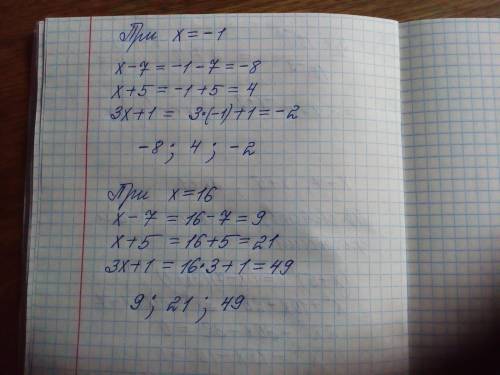 При x=-1
x-7=-1-7=-8
x+5=-1+5=4
3x+1= 3·(-1)+1=-2
-8; 4; -2
При x=16
x-7=16-7=9
x+5=16+5=21
3x+1=16·3+1=49
9; 21; 49